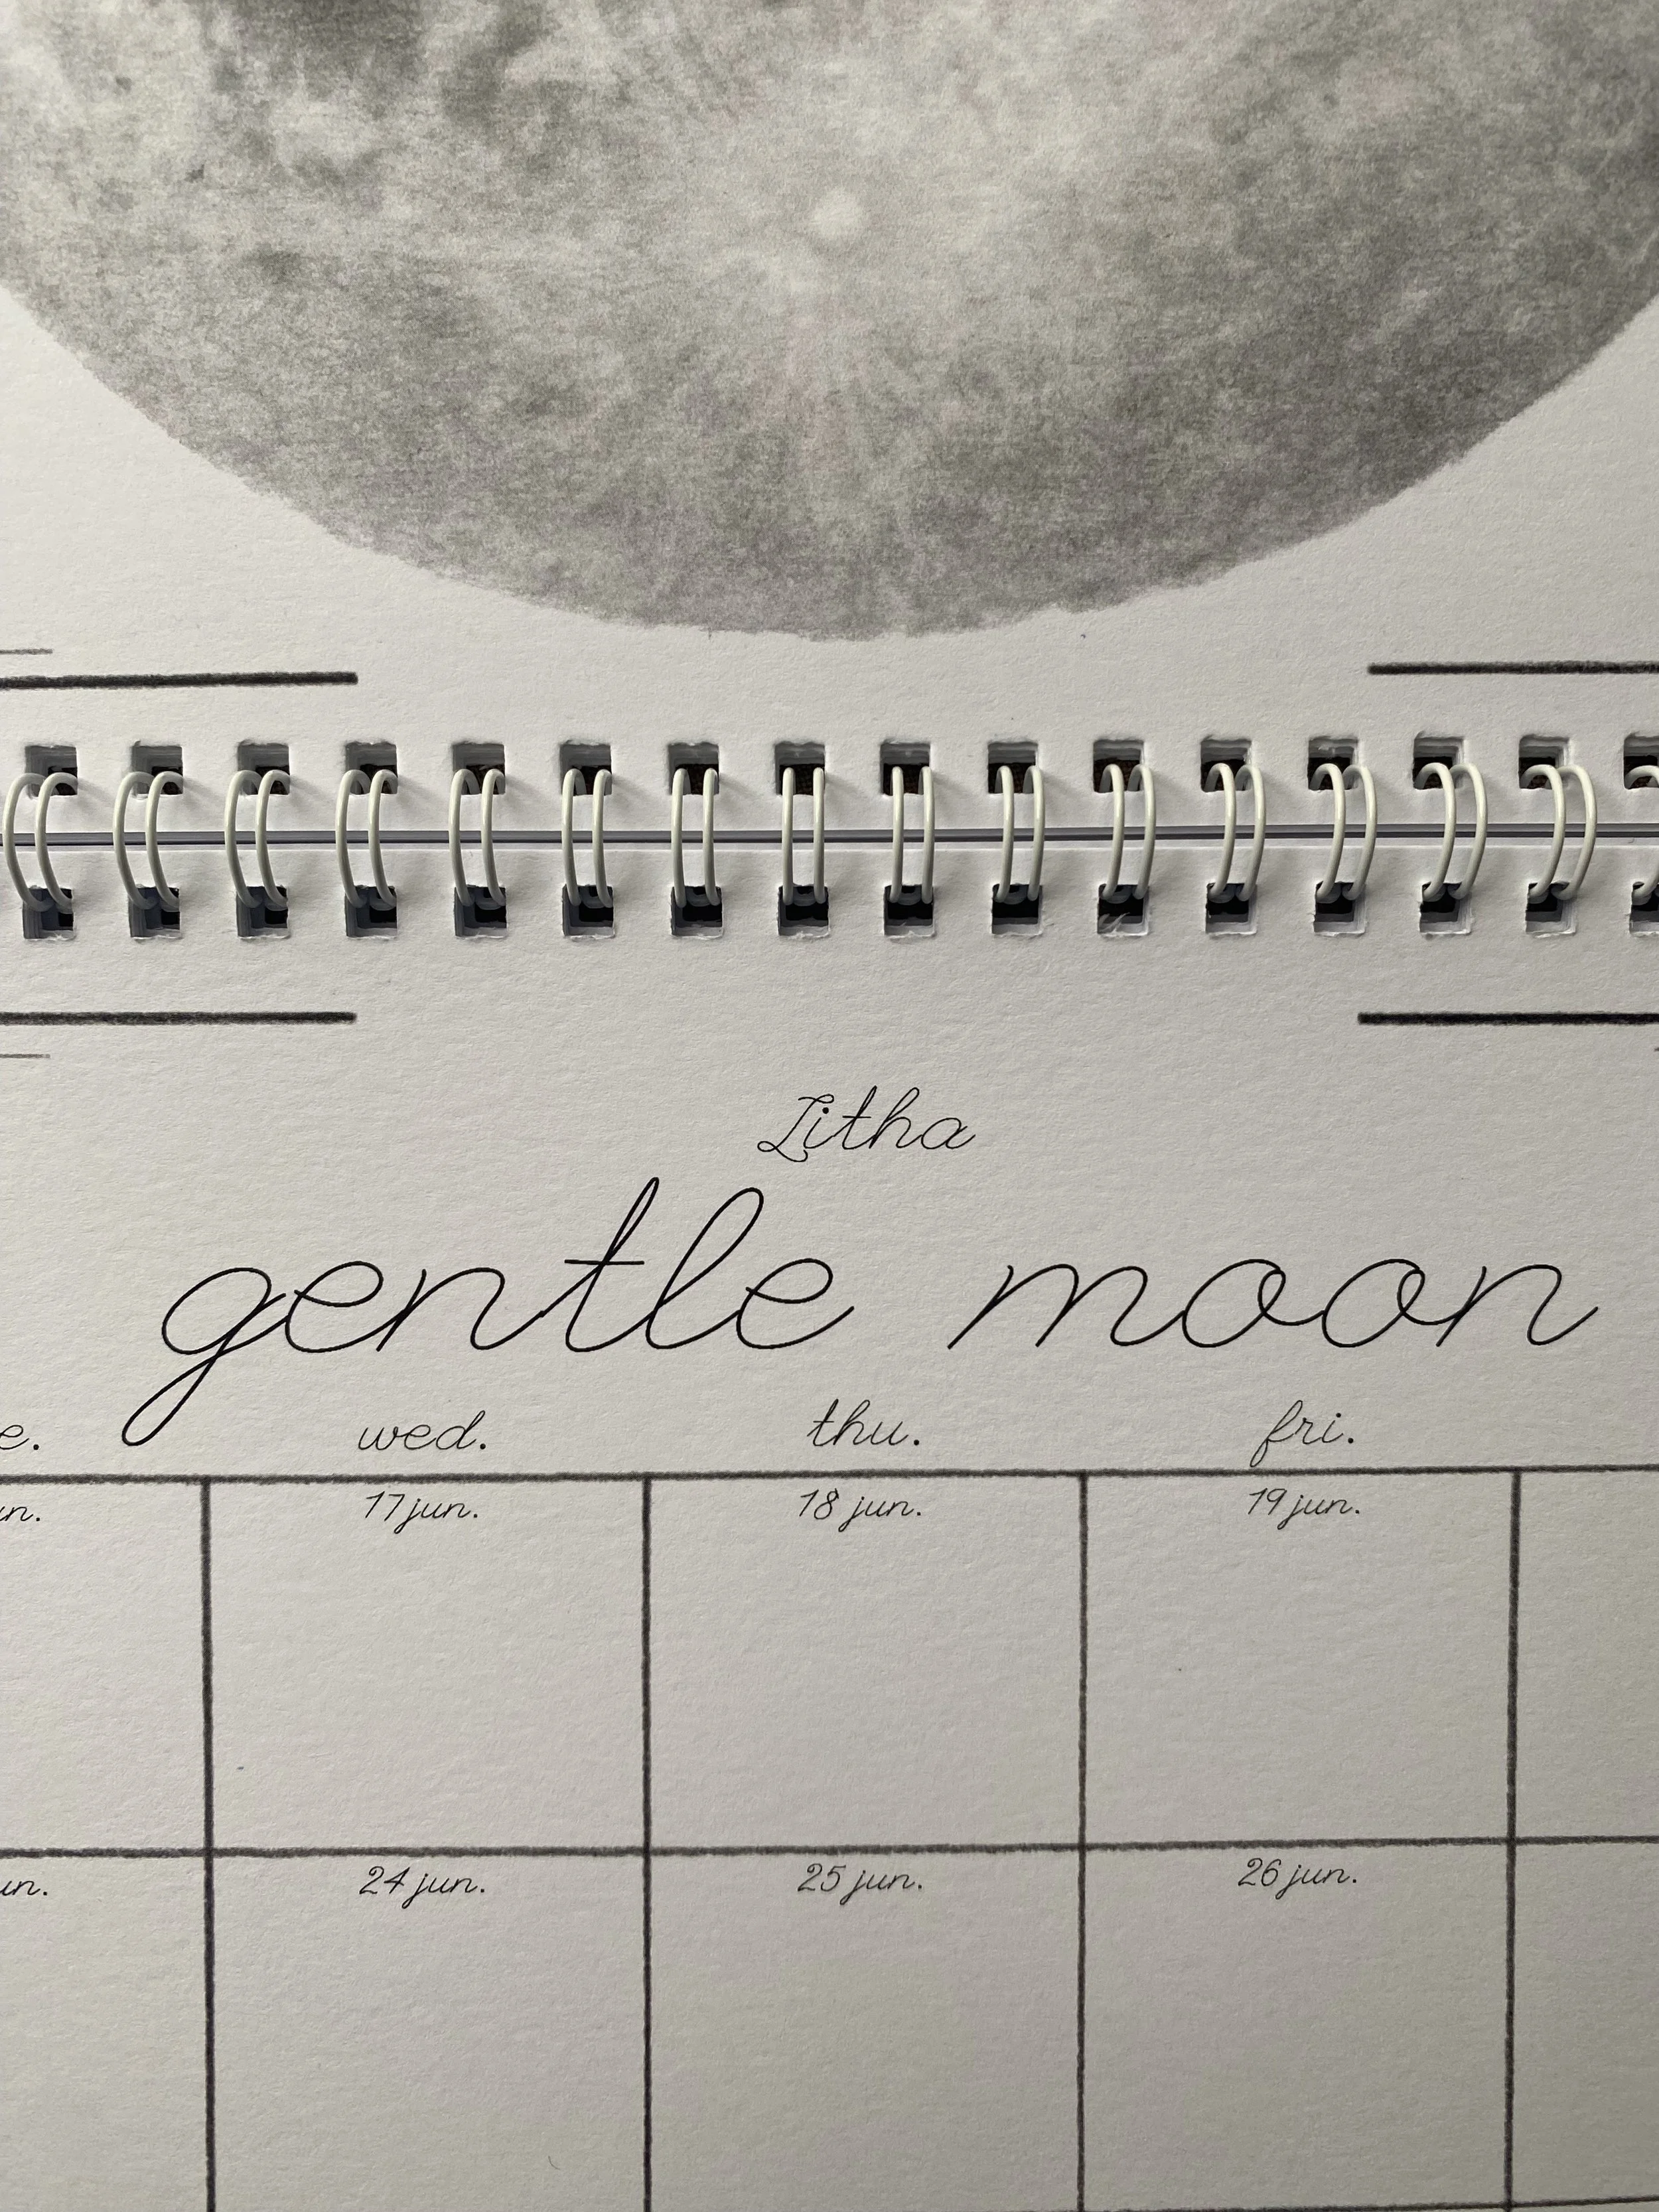 Litha
gentle moon
e. wed. thu. fri.
un. 17 jun. 18 jun. 19 jun.
un. 24 jun. 25 jun. 26 jun.